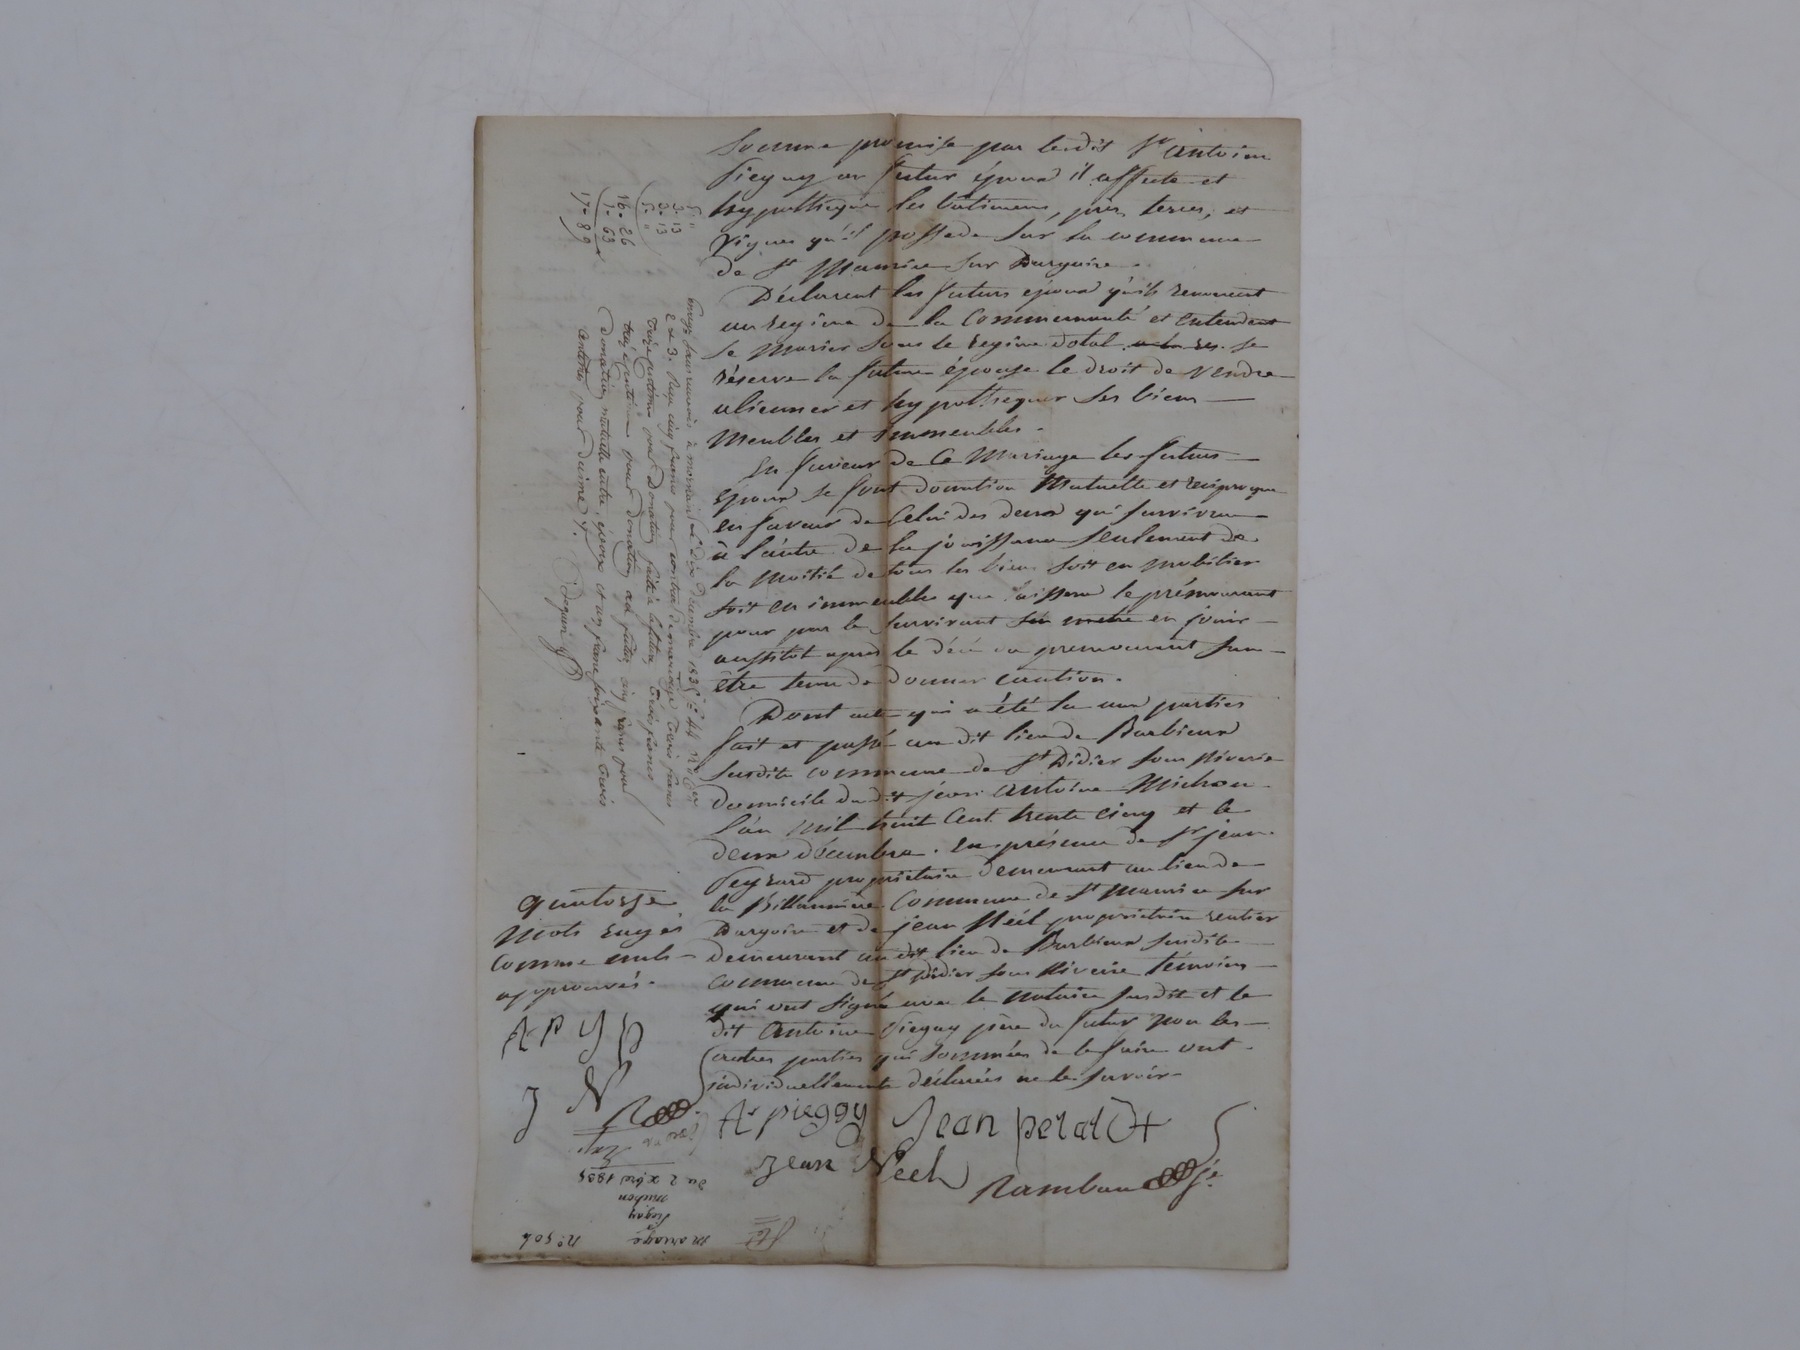 Somme promise par ledit Sr antoine
Piegay au futur époux il affecte et
hypothèque les bâtimens, près, terres, et
vignes qu'il possede sur la commune
de St Maurice sur Dargoire.
Déclarent les futurs époux qu'ils renoncent
au regime de la Communauté et entendent
se marier sous le regime dotal se
réserve la future épouse le droit de vendre
alienner et hypothequer ses biens
Meubles et immeubles.
En faveur de Ce Mariage les futurs
époux se font donation Mutuelle et reciproque
en faveur de Celui des deux qui survivra
a l'autre de la jouissance seulement de
la Moitié de tous les biens soit en mobilier
soit en immeubles que laissera le prémourant
pour par le survivant en jouir
aussitot apres le décé du premourant sans
être tenu de donner caution.
Dont acte qui a été lu aux parties
fait et passé au dit lieu de Barbieux
susdite commune de St Didier sous Riverie
domicile du dit jean antoine Michon
l'an Mil huit Cent trente cinq et le
deux décembre. En présence de Sr jean
Peyrard propriétaire demeurant au lieu de
la Billannière Commune de St Maurice sur
Dargoire et de jean Néel propriétaire rentier
demeurant au dit lieu de Barbieux susdite
commune de St Didier sous Riverie témoins
qui ont signé avec le notaire susdit et le
dit Antoine Piegay père du futur non les
autres parties qui sommées de le faire ont
individuellement déclarées ne le savoir
Ar piegay Jean
jean Neel
quatorze
Mots rayés
comme nuls
approuvés.
A P
J N
5 "
3. 13
3. 13
5. "
16. 26
1. 63
17. 89
à mornant Le dix décembre 1835 fo 44
et 3. Reçu cinq francs pour contrat de mariage trois francs
treize centimes pour Donation faite à la future trois francs
treize centimes pour donation au futur cinq francs pour
Donation mutuelle entre époux et un franc soixante trois
centimes pour décime
no 504
mariage
Piegay
michon
du 2 xbre 1835